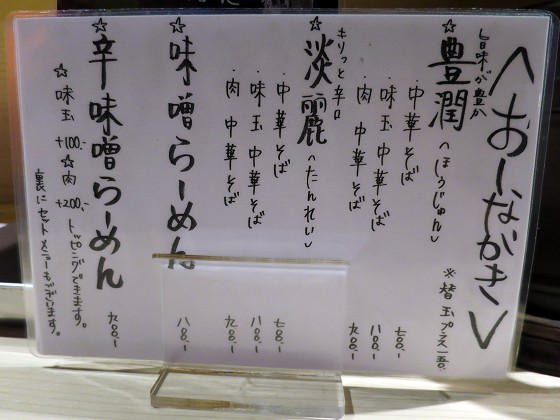 <おーしながき>
※替玉プラス一五〇.
旨味が豊か
☆豊潤<ほうじゅん>
・中華そば 七〇〇.-
・味玉中華そば 八〇〇.-
・肉中華そば 九〇〇.-
キリっと辛口
☆淡麗<たんれい>
・中華そば 七〇〇.-
・味玉中華そば 八〇〇.-
・肉中華そば 九〇〇.-
☆味噌らーめん 八〇〇.-
☆辛味噌らーめん 九〇〇.-
☆味玉 +100.- ☆肉 +200.- トッピングできます。
裏にセットメニューもございます。